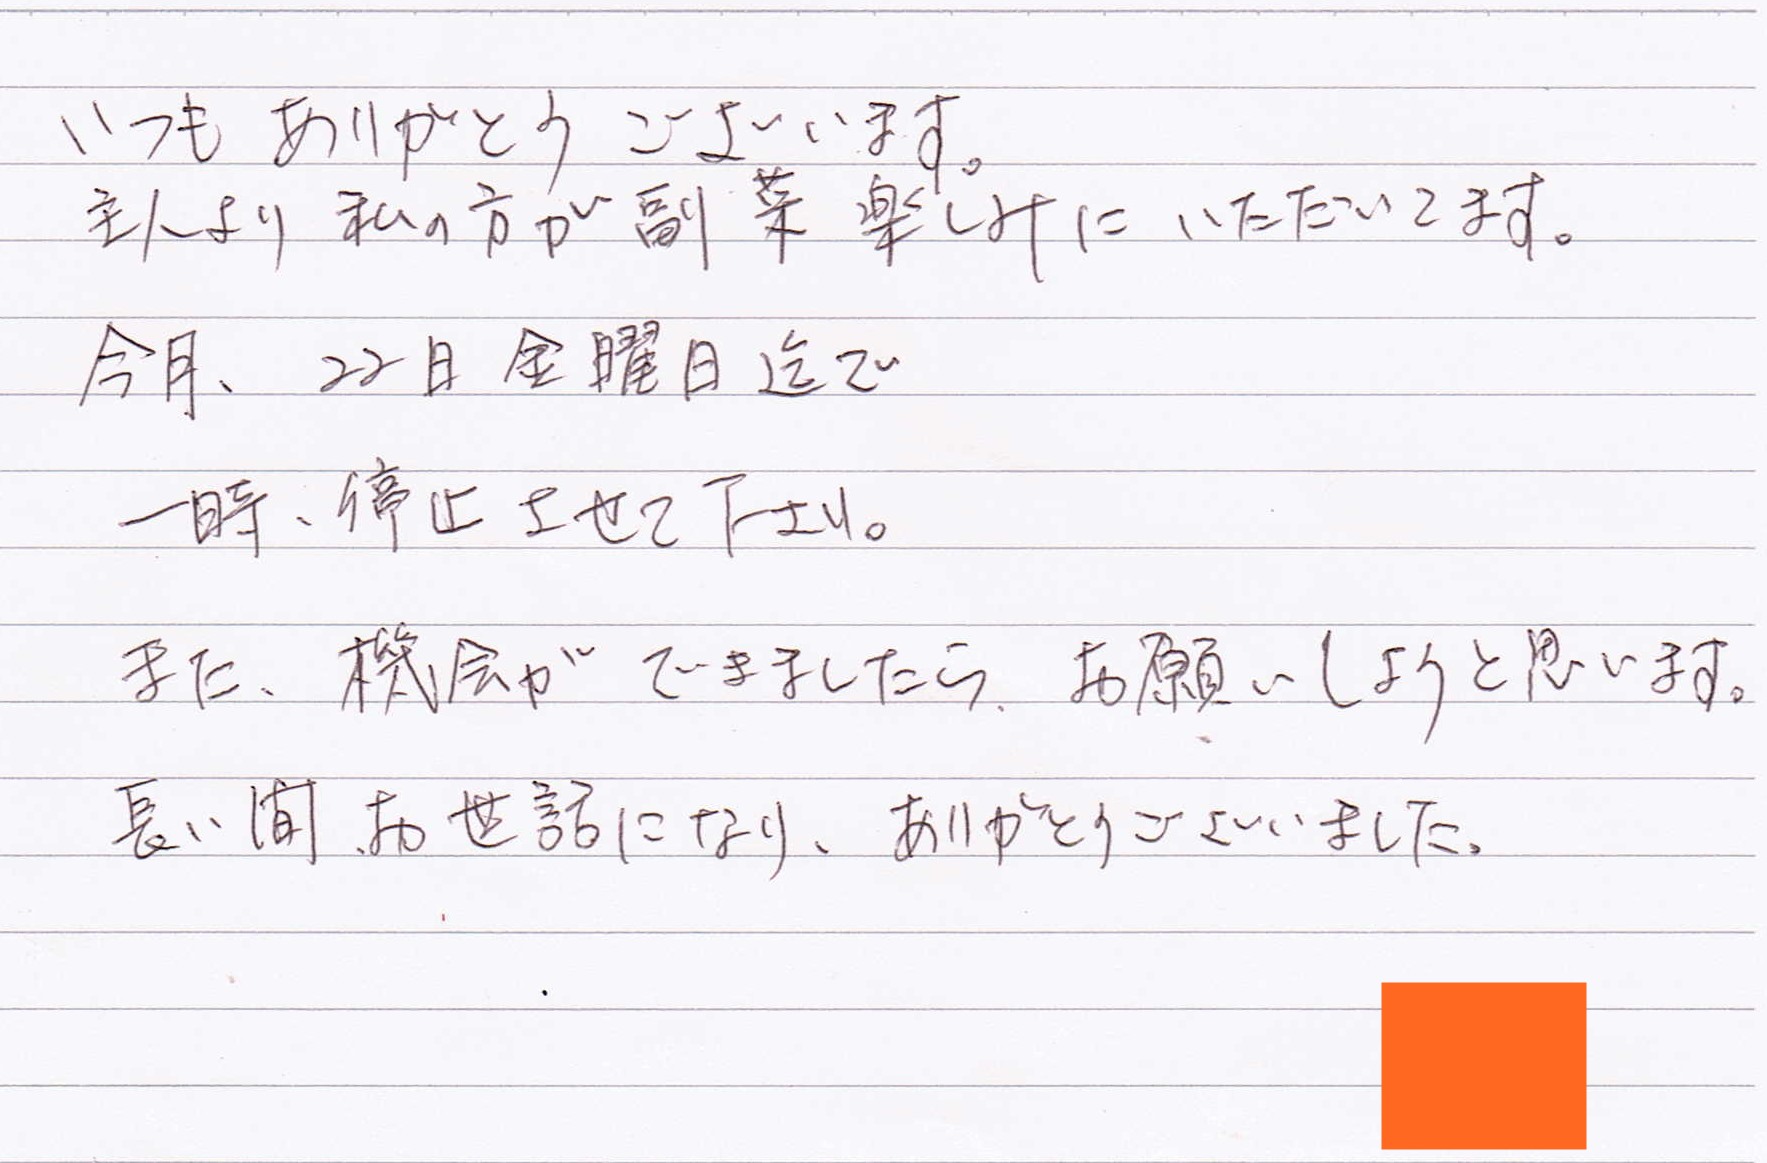 いつも ありがとう ございます。
主人より 私の方が副菜 楽しみに いただいてます。
今月、 22日 金曜日迄で
一時、停止させて下さい。
また、機会が できましたら、お願いしようと思います。
長い間、お世話になり、ありがとうございました。